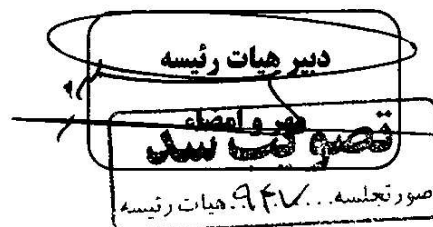 دبیر هیات رئیسه
مهر و امضاء
تصویب شد
صورتجلسه...۹۴۷...هیات رئیسه